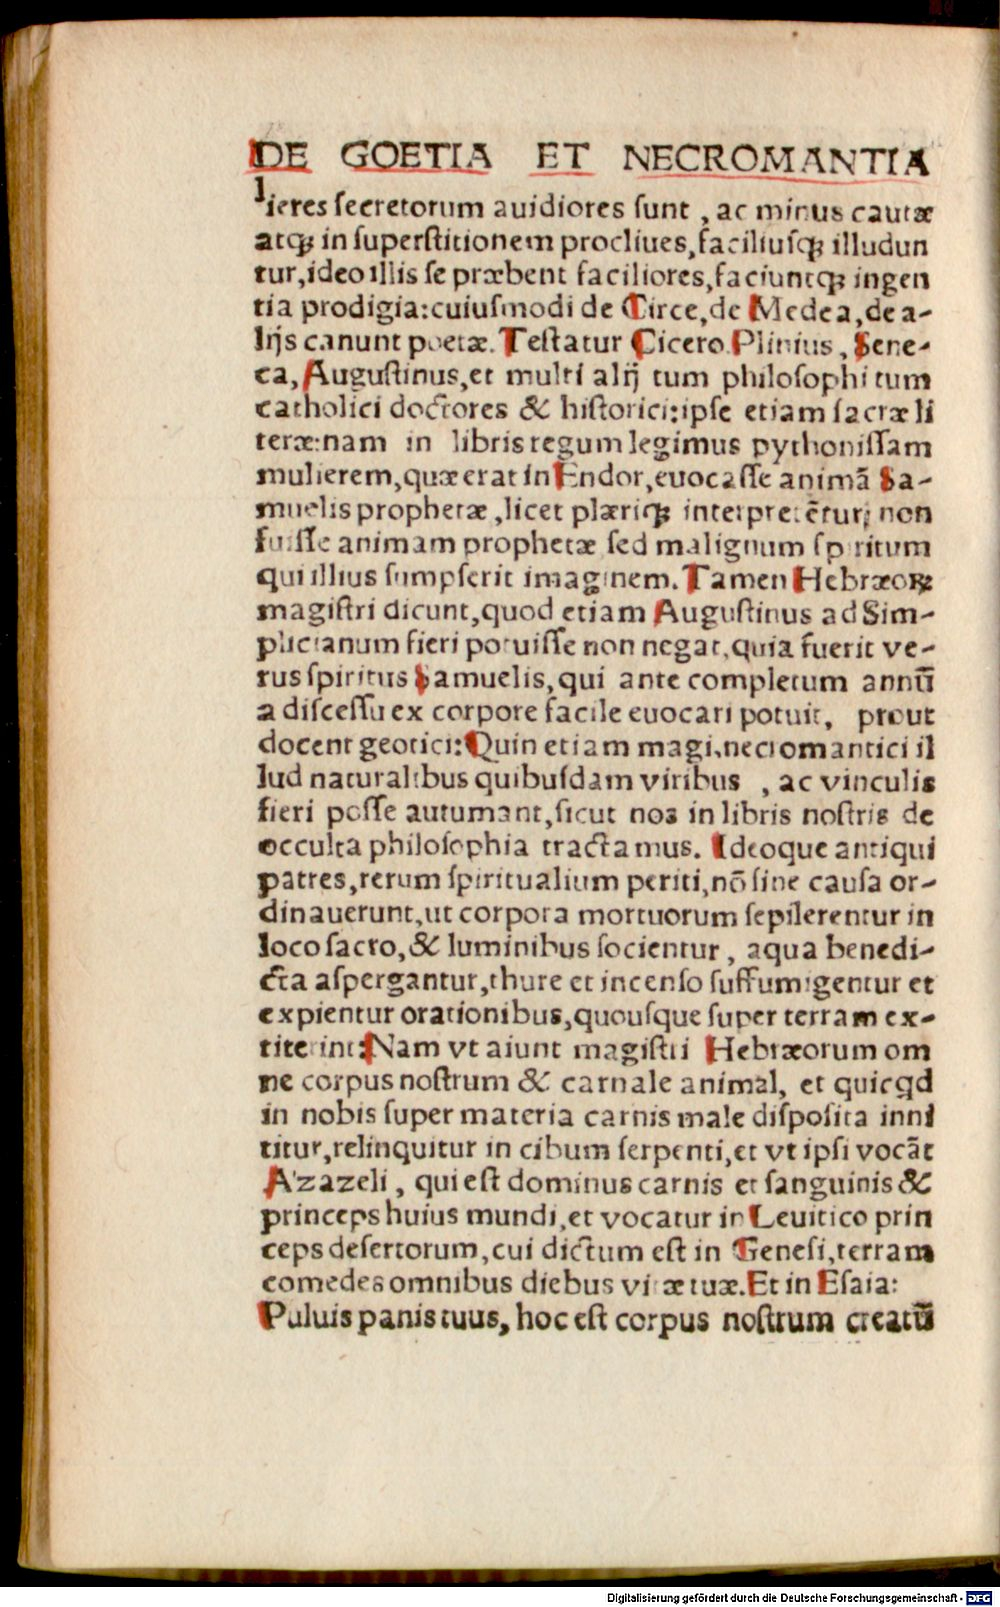 DE GOETIA ET NECROMANTIA
lieres ſecretorum auidiores ſunt , ac minus cautæ
atqꝫ in ſuperſtitionem procliues, faciliuſqꝫ illudun
tur, ideo illis ſe præbent faciliores, faciuntqꝫ ingen
tia prodigia: cuiuſmodi de Circe, de Medea, de a-
lijs canunt poetæ. Teſtatur Cicero. Plinius, Sene-
ca, Auguſtinus, et multi alij tum philoſophi tum
catholici doctores & hiſtorici: ipſe etiam ſacræ li
teræ: nam in libris regum legimus pythoniſſam
mulierem, quæ erat in Endor, euocaſſe animã Sa-
muelis prophetæ , licet plæriqꝫ interpretẽtur; non
fuiſſe animam prophetæ ſed malignum ſpiritum
qui illius ſumpſerit imaginem. Tamen Hebræoꝝ
magiſtri dicunt, quod etiam Auguſtinus ad Sim-
plicianum fieri potuiſſe non negat, quia fuerit ve-
rus ſpiritus Samuelis, qui ante completum annũ
a diſceſſu ex corpore facile euocari potuit, prout
docent geotici: Quin etiam magi, necromantici il
lud naturalibus quibuſdam viribus , ac vinculis
fieri poſſe autumant, ſicut nos in libris noſtris de
occulta philoſophia tractamus. Ideoque antiqui
patres, rerum ſpiritualium periti, nõ ſine cauſa or-
dinauerunt, ut corpora mortuorum ſepilerentur in
loco ſacro, & luminibus ſocientur, aqua benedi-
cta aſpergantur, thure et incenſo ſuffumigentur et
expientur orationibus, quouſque ſuper terram ex-
titerint: Nam vt aiunt magiſtri Hebræorum om
ne corpus noſtrum & carnale animal, et quicꝗd
in nobis ſuper materia carnis male diſpoſita inni
titur, relinquitur in cibum ſerpenti, et vt ipſi vocãt
A'zazeli , qui eſt dominus carnis et ſanguinis &
princeps huius mundi, et vocatur in Leuitico prin
ceps deſertorum, cui dictum eſt in Geneſi, terram
comedes omnibus diebus vitæ tuæ. Et in Eſaia:
Puluis panis tuus, hoc eſt corpus noſtrum creatũ
Digitalisierung gefördert durch die Deutsche Forschungsgemeinschaft - DFG